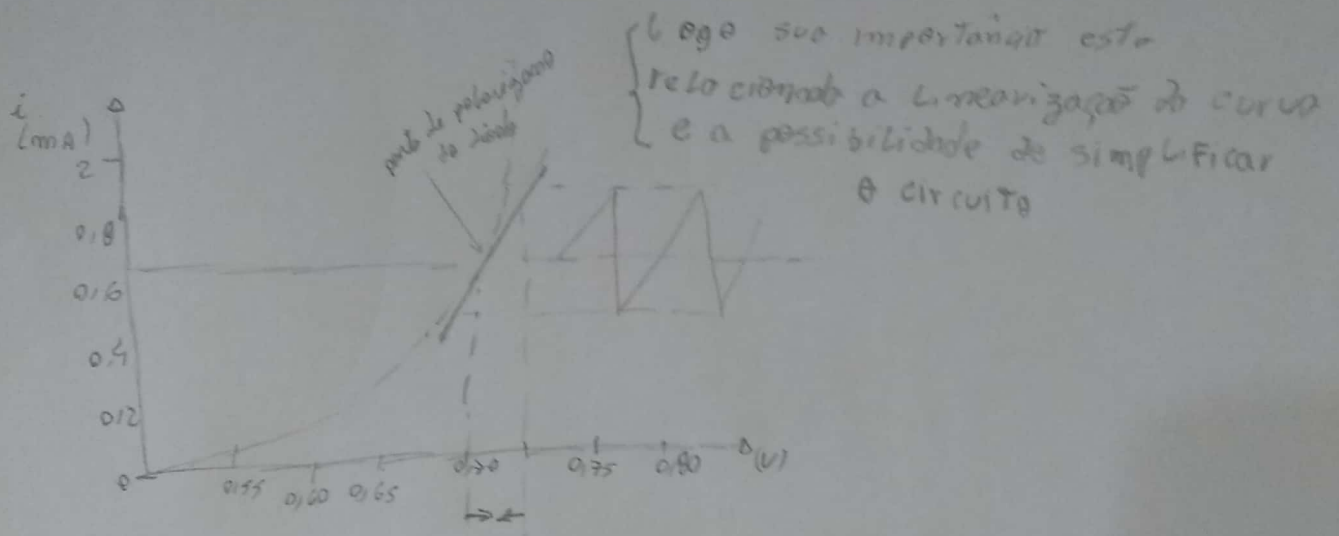 Logo sua importância esta
relacionada a Linearização da curva
e a possibilidade de simplificar
o circuito
ponto de polarização
do diodo
i
(mA)
2
0,8
0,6
0,4
0,2
0
0,55 0,60 0,65 0,70 0,75 0,80 (V)